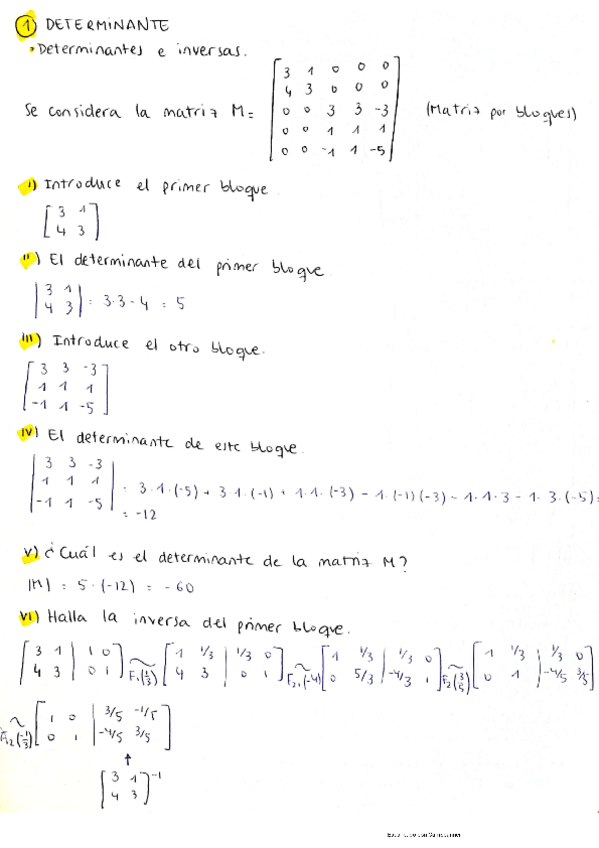 ① DETERMINANTE
• Determinantes e inversas.
Se considera la matriz M = [3 1 0 0 0
4 3 0 0 0
0 0 3 3 -3
0 0 1 1 1
0 0 -1 1 -5] (Matriz por bloques)
i) Introduce el primer bloque
[3 1
4 3]
ii) El determinante del primer bloque.
|3 1
4 3| = 3·3 - 4 = 5
iii) Introduce el otro bloque.
[3 3 -3
1 1 1
-1 1 -5]
iv) El determinante de este bloque.
|3 3 -3
1 1 1
-1 1 -5| = 3·1·(-5) + 3·1·(-1) + 1·1·(-3) - 1·(-1)(-3) - 1·1·3 - 1·3·(-5) =
= -12
v) ¿Cuál es el determinante de la matriz M?
|M| = 5·(-12) = -60
vi) Halla la inversa del primer bloque.
[3 1 | 1 0
4 3 | 0 1] ~ F₁(1/3) [1 1/3 | 1/3 0
4 3 | 0 1] ~ F₂₁(-4) [1 1/3 | 1/3 0
0 5/3 | -4/3 1] ~ F₂(3/5) [1 1/3 | 1/3 0
0 1 | -4/5 3/5]
~ F₁₂(-1/3) [1 0 | 3/5 -1/5
0 1 | -4/5 3/5]
↑
[3 1
4 3]⁻¹